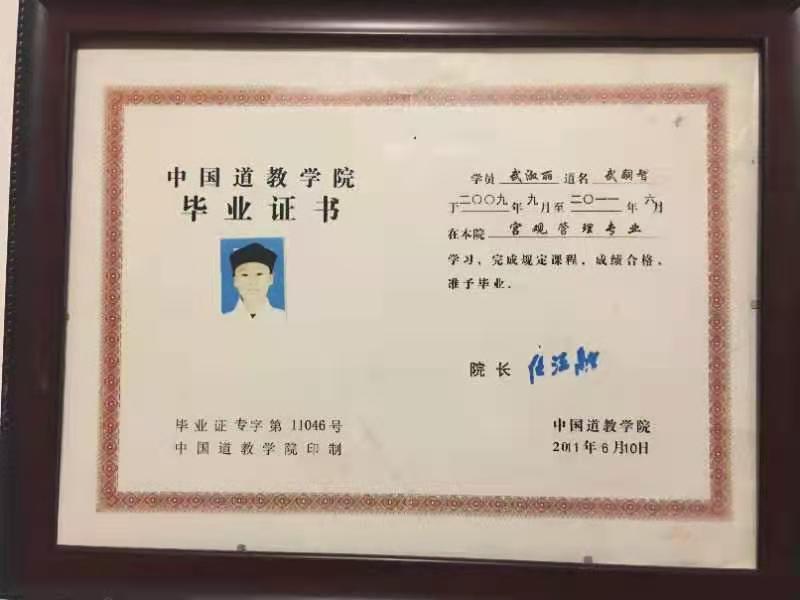 中国道教学院
毕业证书
毕业证专字第11046号
中国道教学院印制
学员 武淑丽 道名 武嗣智
于二〇〇九年九月至二〇一一年六月
在本院 宫观管理专业
学习，完成规定课程，成绩合格，
准予毕业．
院长 任法融
中国道教学院
2011年6月10日